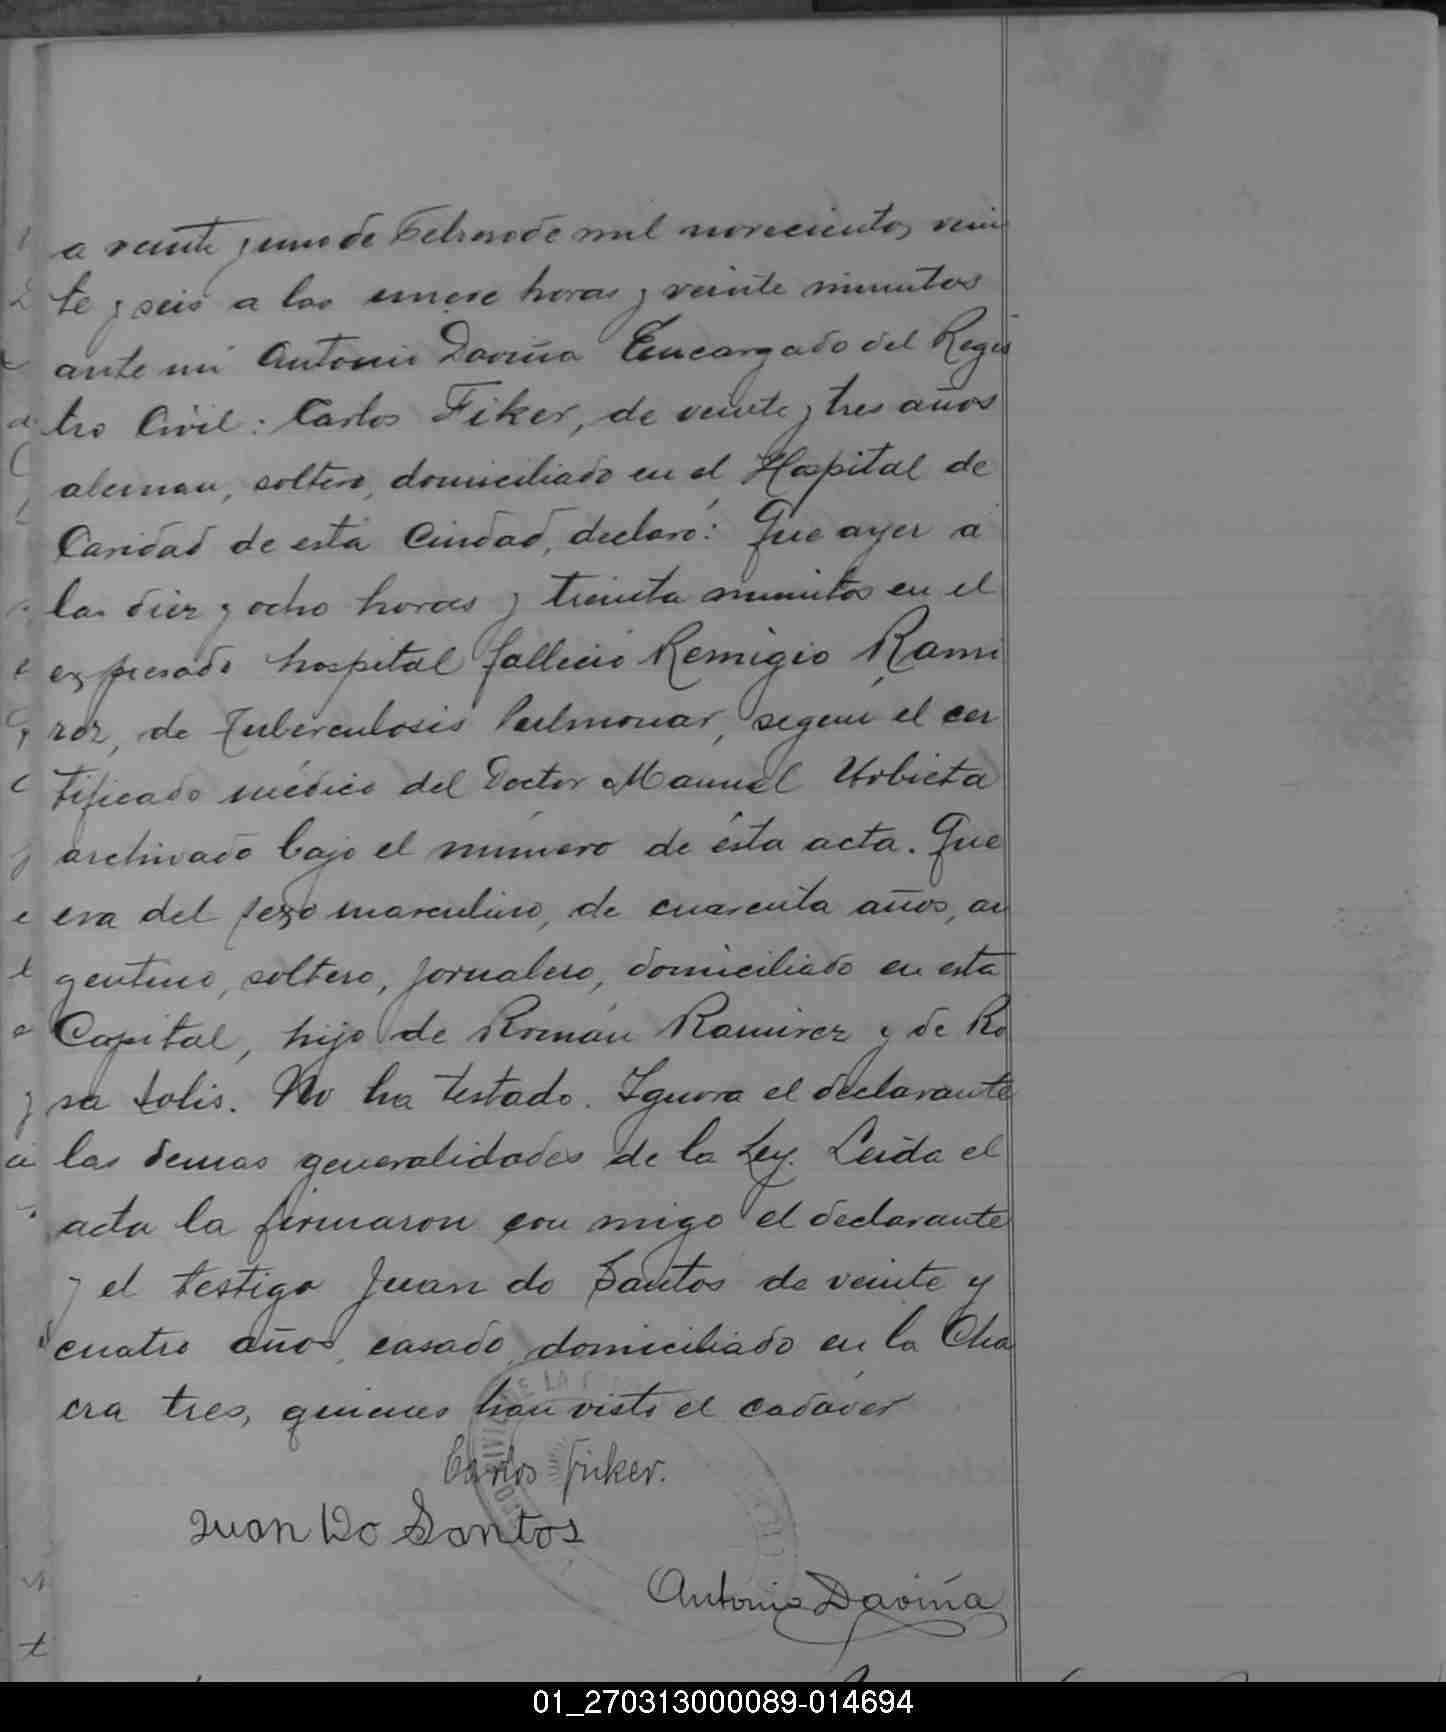 a veinte y uno de Febrero de mil novecientos vein
te y seis a las once horas y veinte minutos
ante mi Antonio Daviña Encargado del Regis
tro Civil: Carlos Fiker, de veinte y tres años
aleman, soltero, domiciliado en el Hospital de
Caridad de esta Ciudad, declaró: Que ayer a
las diez y ocho horas y treinta minutos en el
expresado hospital falleció Remigio Rami
rez, de Tuberculosis Pulmonar, según el cer
tificado médico del Doctor Manuel Urbieta
archivado bajo el número de ésta acta. Que
era del sexo masculino, de cuarenta años, ar
gentino, soltero, jornalero, domiciliado en esta
Capital, hijo de Román Ramirez y de Ro
sa Solis. No ha testado. Ignora el declarante
las demas generalidades de la Ley. Leida el
acta la firmaron con migo el declarante
y el testigo Juan do Santos de veinte y
cuatro años, casado, domiciliado en la Cha
cra tres, quienes han visto el cadáver
Carlos Fiker.
Juan Do Santos
Antonio Daviña
01_270313000089-014694